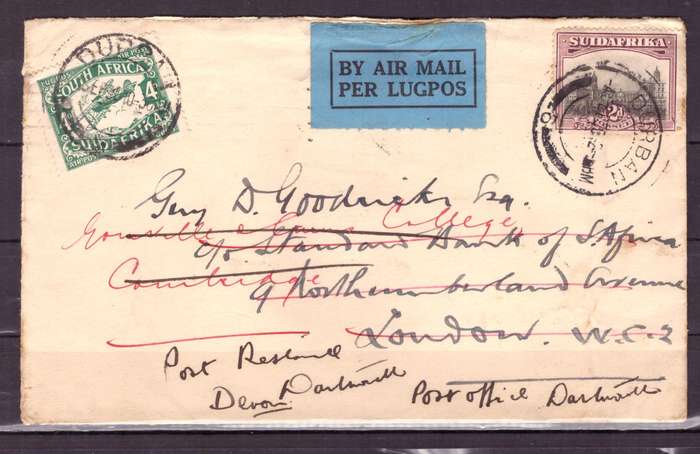 DURBAN
LUGPOS
SOUTH AFRICA
4
SUIDAFRIKA
AIRPOST
BY AIR MAIL
PER LUGPOS
SUIDAFRIKA
DURBAN
Guy D. Goodricke Esq.
Gonville & Caius College
c/o Standard Bank of S Africa
Cambridge
9 Northumberland Avenue
London. W.C.2
Post Restante
Devon Dartmouth
Post office Dartmouth